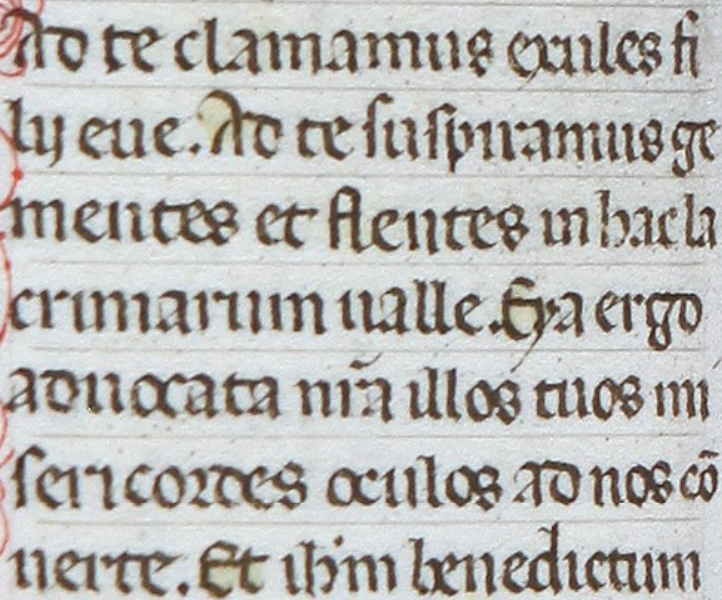 Ad te clamamus exules fi
lij eue. Ad te suspiramus ge
mentes et flentes in hac la
crimarum ualle. Eya ergo
aduocata nr̄a illos tuos mi
sericordes oculos ad nos cō
uerte. Et ih̄m benedictum